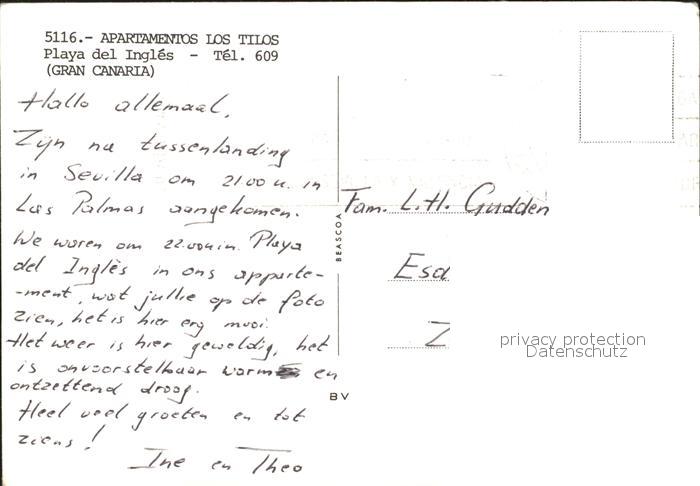 5116.- APARTAMENTOS LOS TILOS
Playa del Inglés - Tél. 609
(GRAN CANARIA)
Hallo allemaal,
Zijn na tussenlanding
in Sevilla om 21.00 u. in
Las Palmas aangekomen.
We waren om 22.00u in Playa
del Inglès in ons apparte-
-ment, wat jullie op de foto
zien, het is hier erg mooi.
Het weer is hier geweldig, het
is onvoorstelbaar warm en
ontzettend droog.
Heel veel groeten en tot
ziens!
Ine en Theo
BEASCOA
BV
Fam. L.H. Gudden
Esd
Z
privacy protection
Datenschutz